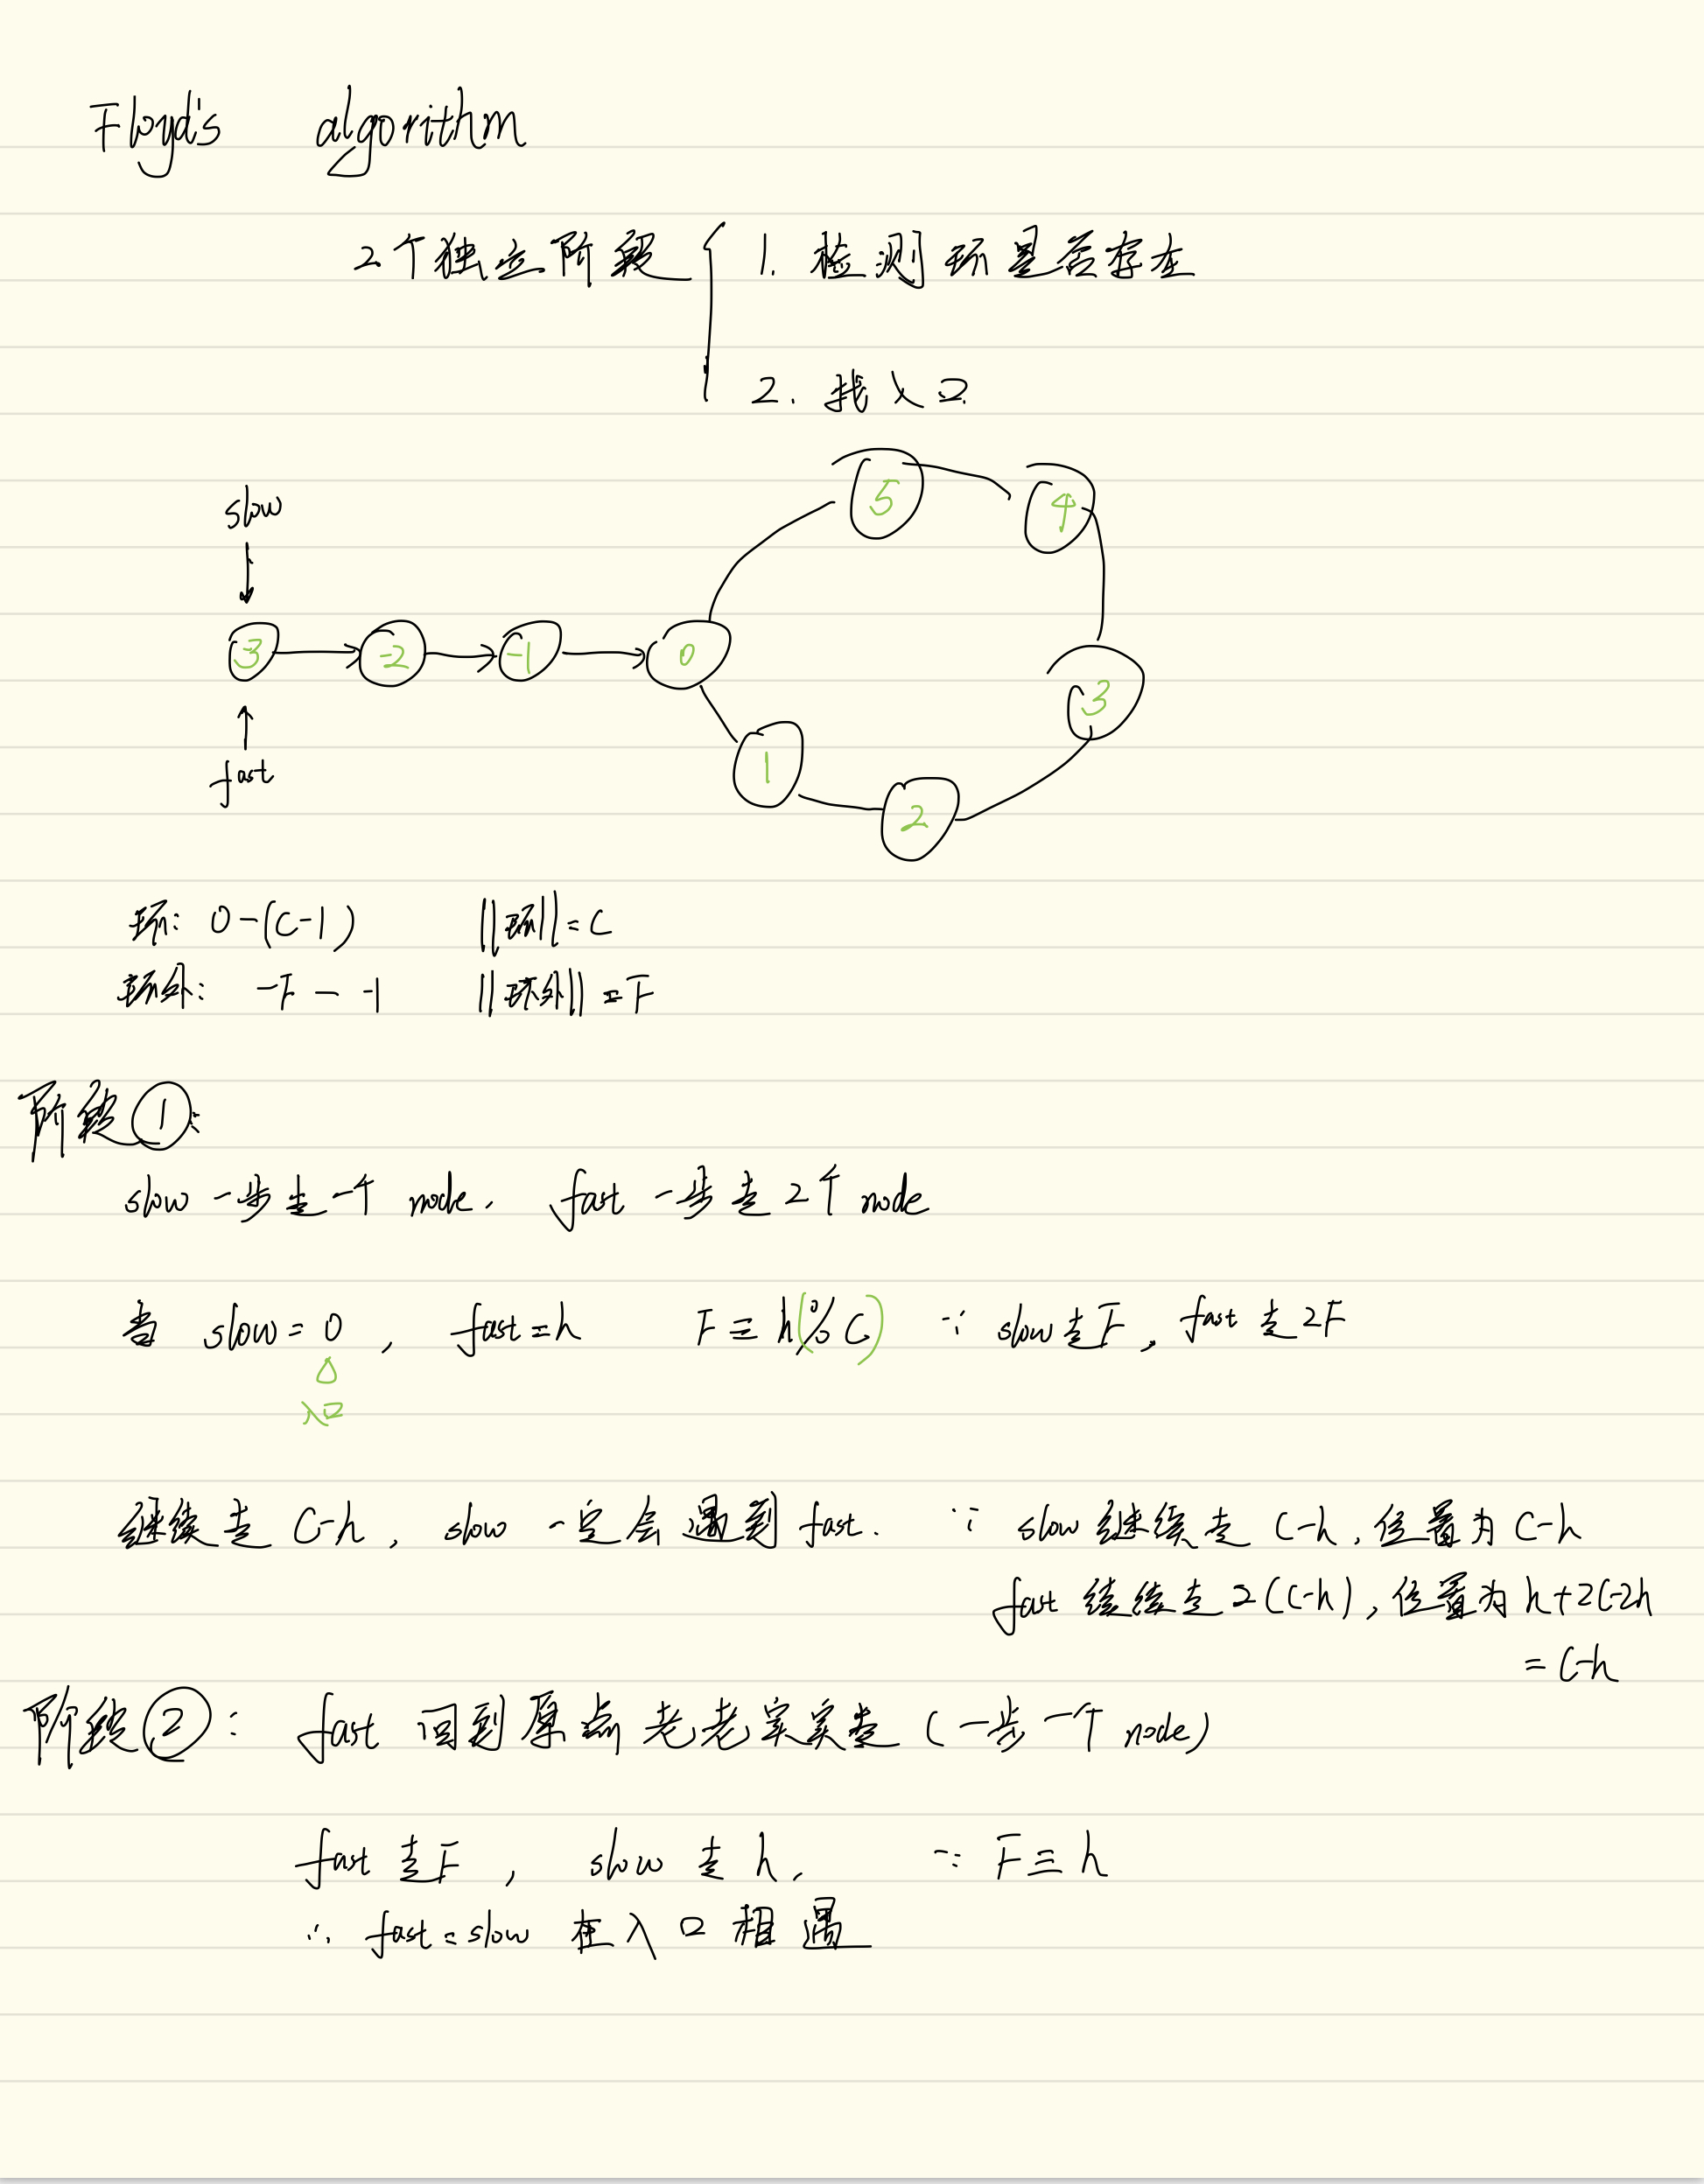 Floyd's algorithm
2个独立阶段 1. 检测环是否存在
2. 找入口
5 4
slow
3 -2 -1 0
3
1
fast
2
环: 0-(C-1) ||环||=C
环外: -F - -1 ||环外||=F
阶段①:
slow 一步走一个 node. fast 一步走2个 node
当 slow=0, fast=h F≡h(% C) ∵ slow走F, fast走2F
入口
继续走 C-h, slow 一定会遇到 fast. ∵ slow 继续走 C-h, 位置为 C-h
fast 继续走 2(C-h), 位置为 h+2C-2h
= C-h
阶段②: fast 回到原点老老实实走 (一步一个 node)
fast 走F, slow 走 h. ∵ F≡h
∴ fast=slow 在入口相遇